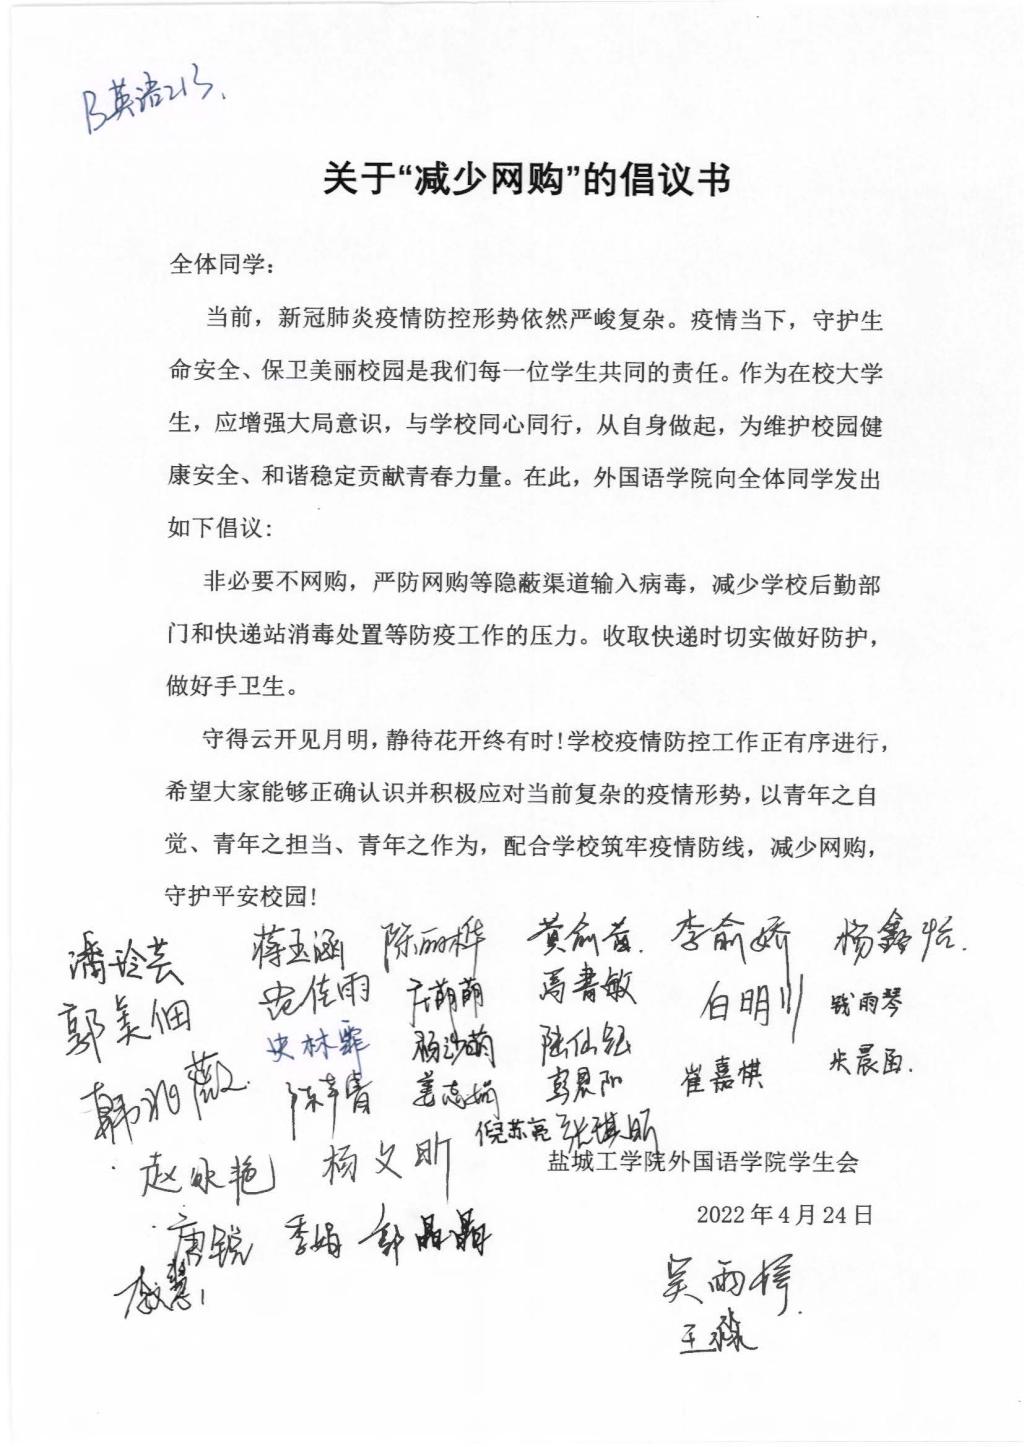 B英语213.
关于“减少网购”的倡议书
全体同学：
当前，新冠肺炎疫情防控形势依然严峻复杂。疫情当下，守护生
命安全、保卫美丽校园是我们每一位学生共同的责任。作为在校大学
生，应增强大局意识，与学校同心同行，从自身做起，为维护校园健
康安全、和谐稳定贡献青春力量。在此，外国语学院向全体同学发出
如下倡议：
非必要不网购，严防网购等隐蔽渠道输入病毒，减少学校后勤部
门和快递站消毒处置等防疫工作的压力。收取快递时切实做好防护，
做好手卫生。
守得云开见月明，静待花开终有时！学校疫情防控工作正有序进行，
希望大家能够正确认识并积极应对当前复杂的疫情形势，以青年之自
觉、青年之担当、青年之作为，配合学校筑牢疫情防线，减少网购，
守护平安校园！
潘玲芸 蒋玉涵 陈丽桦 李俞娇 杨鑫怡.
郭美佃 范佳雨 庄萌萌 冯書敏 白明川 钱雨琴
史林霏 陆仙钰 崔嘉棋 朱晨函.
姜志娟 彭晨阳
倪苏亮 张琪昕
盐城工学院外国语学院学生会
赵咏艳 杨文昕
2022 年 4 月 24 日
唐锐 季娟 郭晶晶
李慧
吴雨桦.
王淼